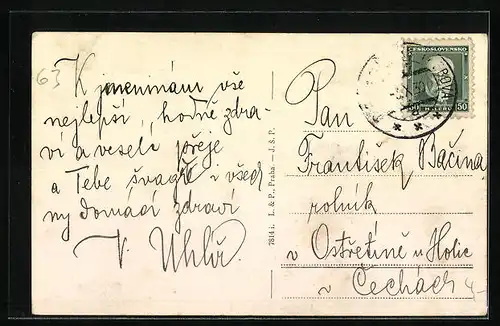 63
K jmeninám vše
nejlepší, hodně zdra-
ví a veselí přeje
a Tebe švagře i všech
ny domácí zdraví
V. Uhlíř.
7814 i. L. & P., Praha. — J. Š. P.
ČESKOSLOVENSKO
50 50
Pan
František Bačina
rolník
v Ostřetíně u Holic
v Čechách
4-